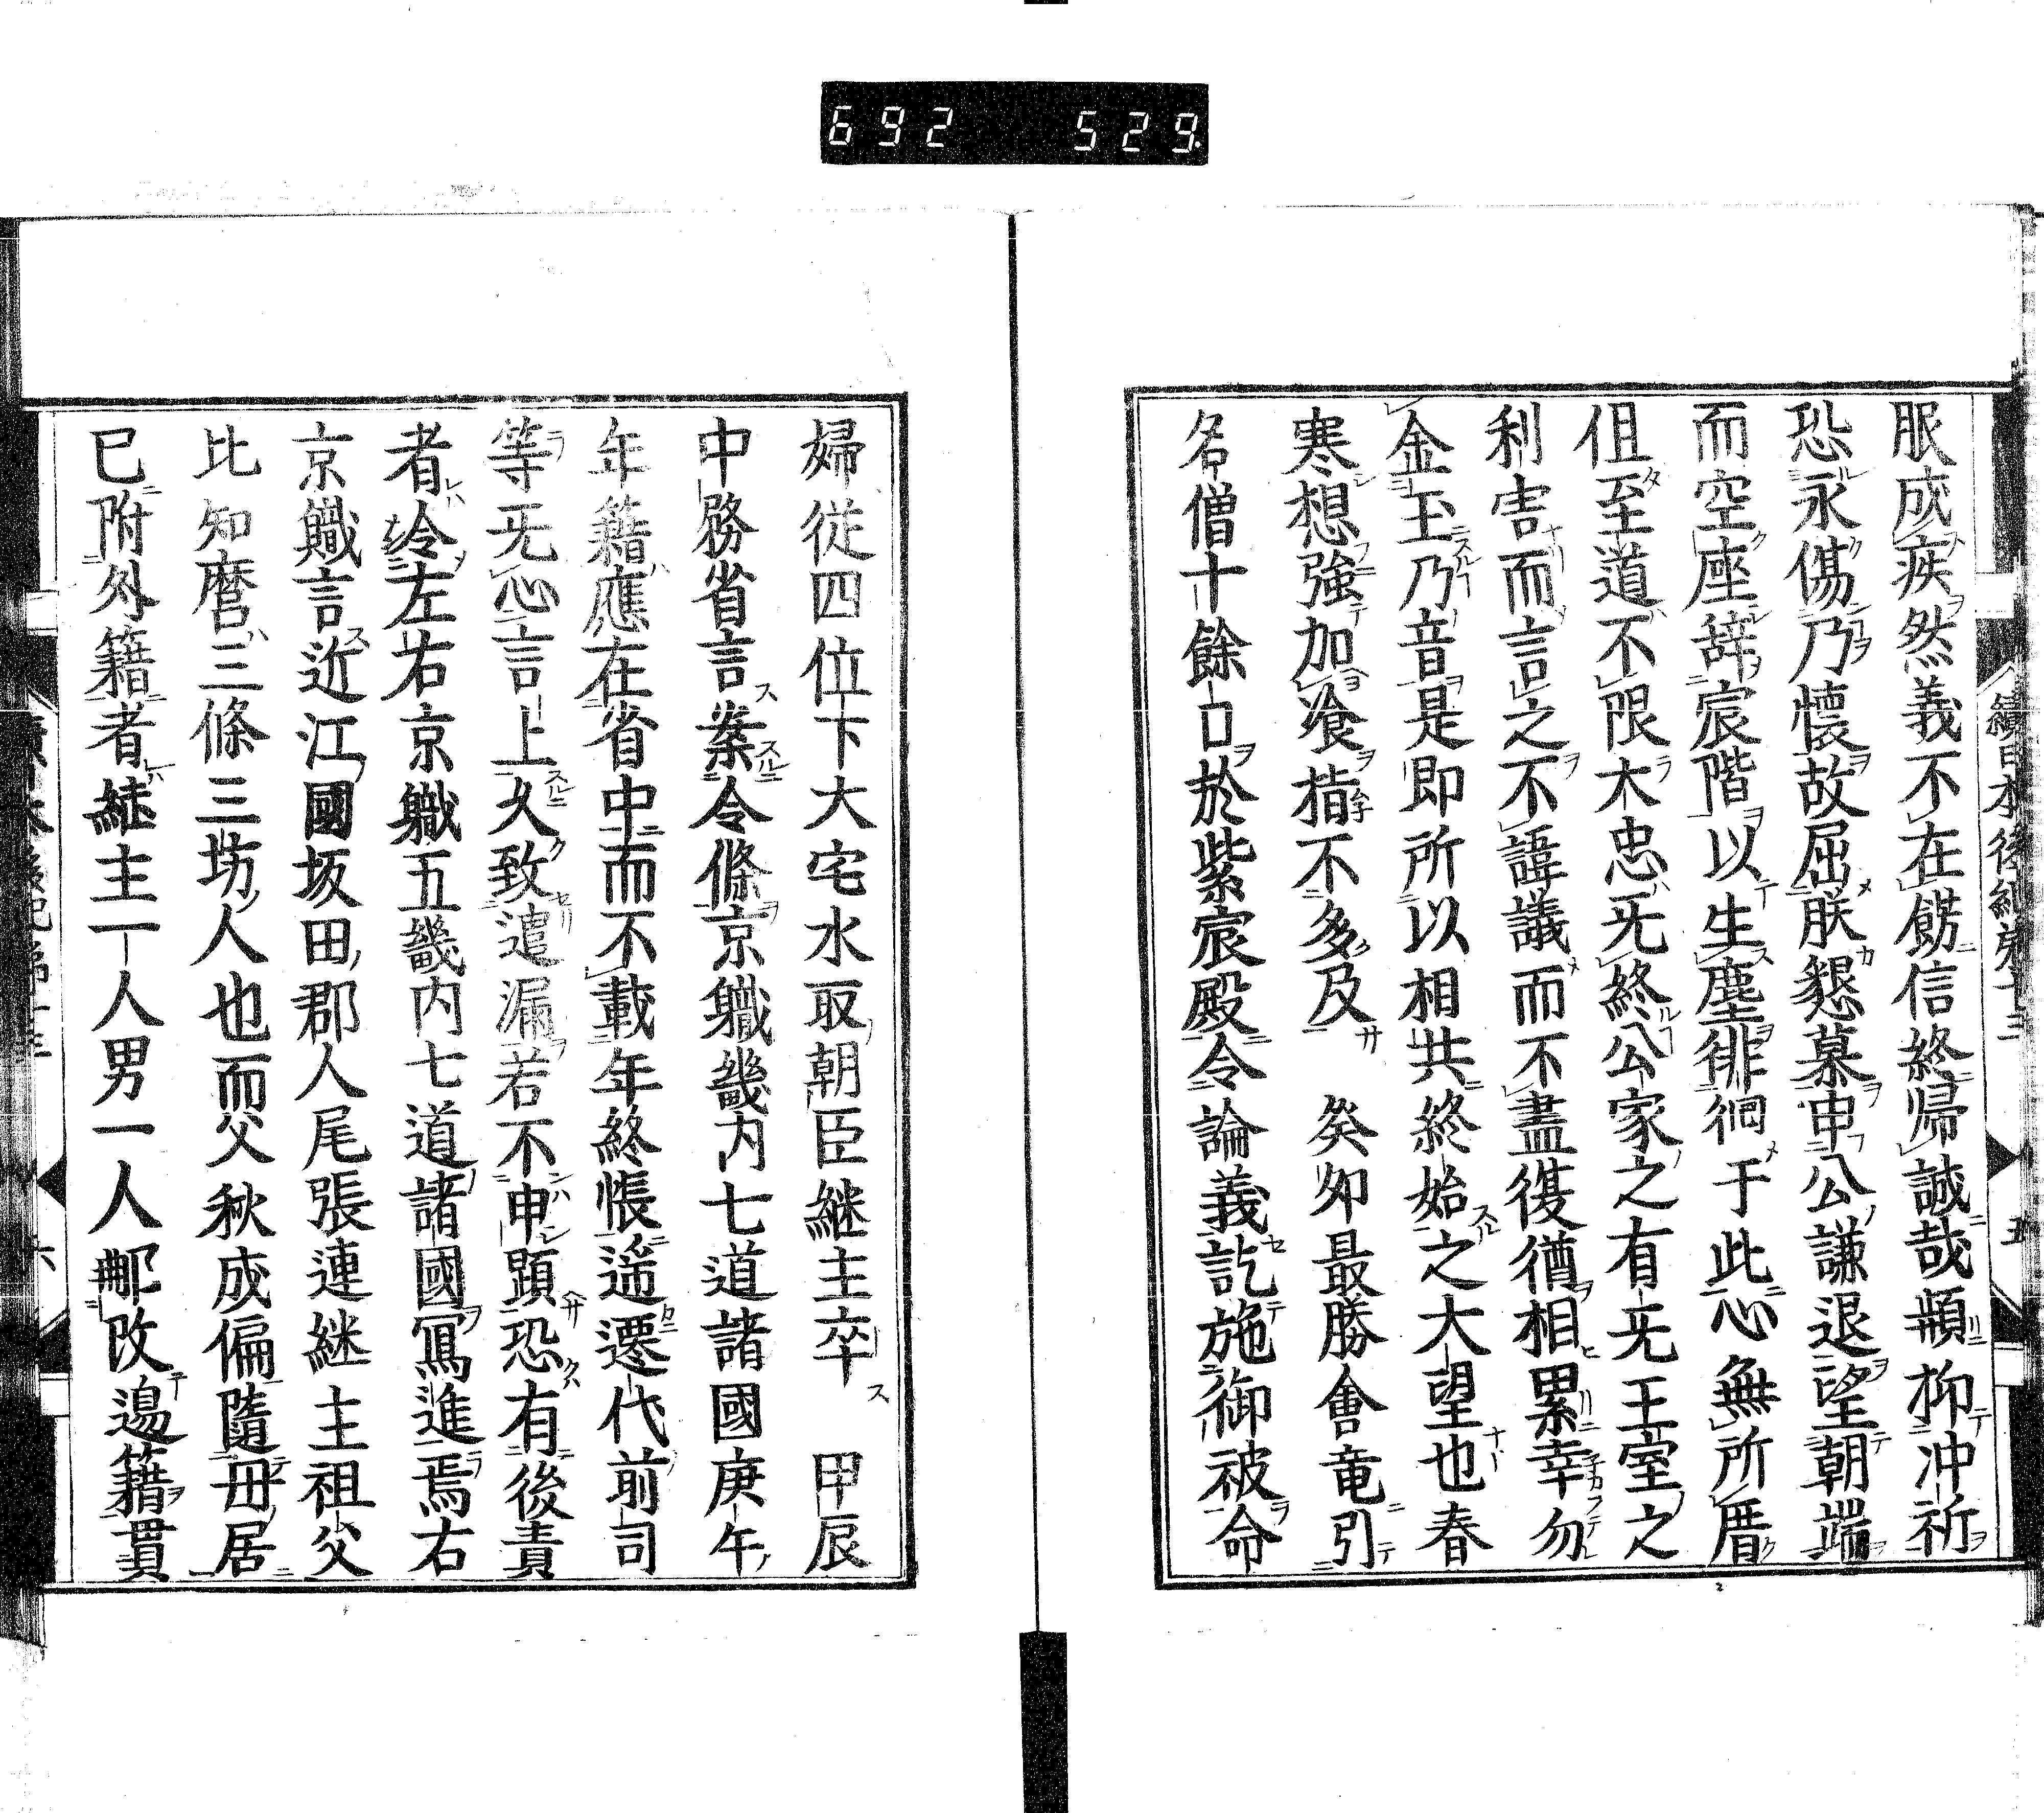 692 529
續日本後紀卷十三 五
服成疾然義不在餝信終歸誠哉頻抑冲祈
恐永傷乃懷故屈朕懇慕申公謙退望朝端
而空座辞宸階以生塵徘徊于此心無所厝
但至道不限大忠旡終公家之有旡王室之
利害而言之不諱議而不盡復猶相累幸勿
金玉乃音是即所以相共終始之大望也春
寒想強加飡指不多及　癸夘最勝會竟引
名僧十餘口於紫宸殿令論義訖施御被命
婦從四位下大宅水取朝臣継主卒　甲辰
中務省言案令條京軄畿内七道諸國庚午
年籍應在省中而不載年終帳遥遷代前司
等旡心言上久致遣漏若不申顕恐有後責
者令左右京軄五畿内七道諸國寫進焉右
京軄言近江國坂田郡人尾張連継主祖父
比知麿三條三坊人也而父秋成偏隨母居
已附外籍者継主一人男一人郍改邊籍貫
六